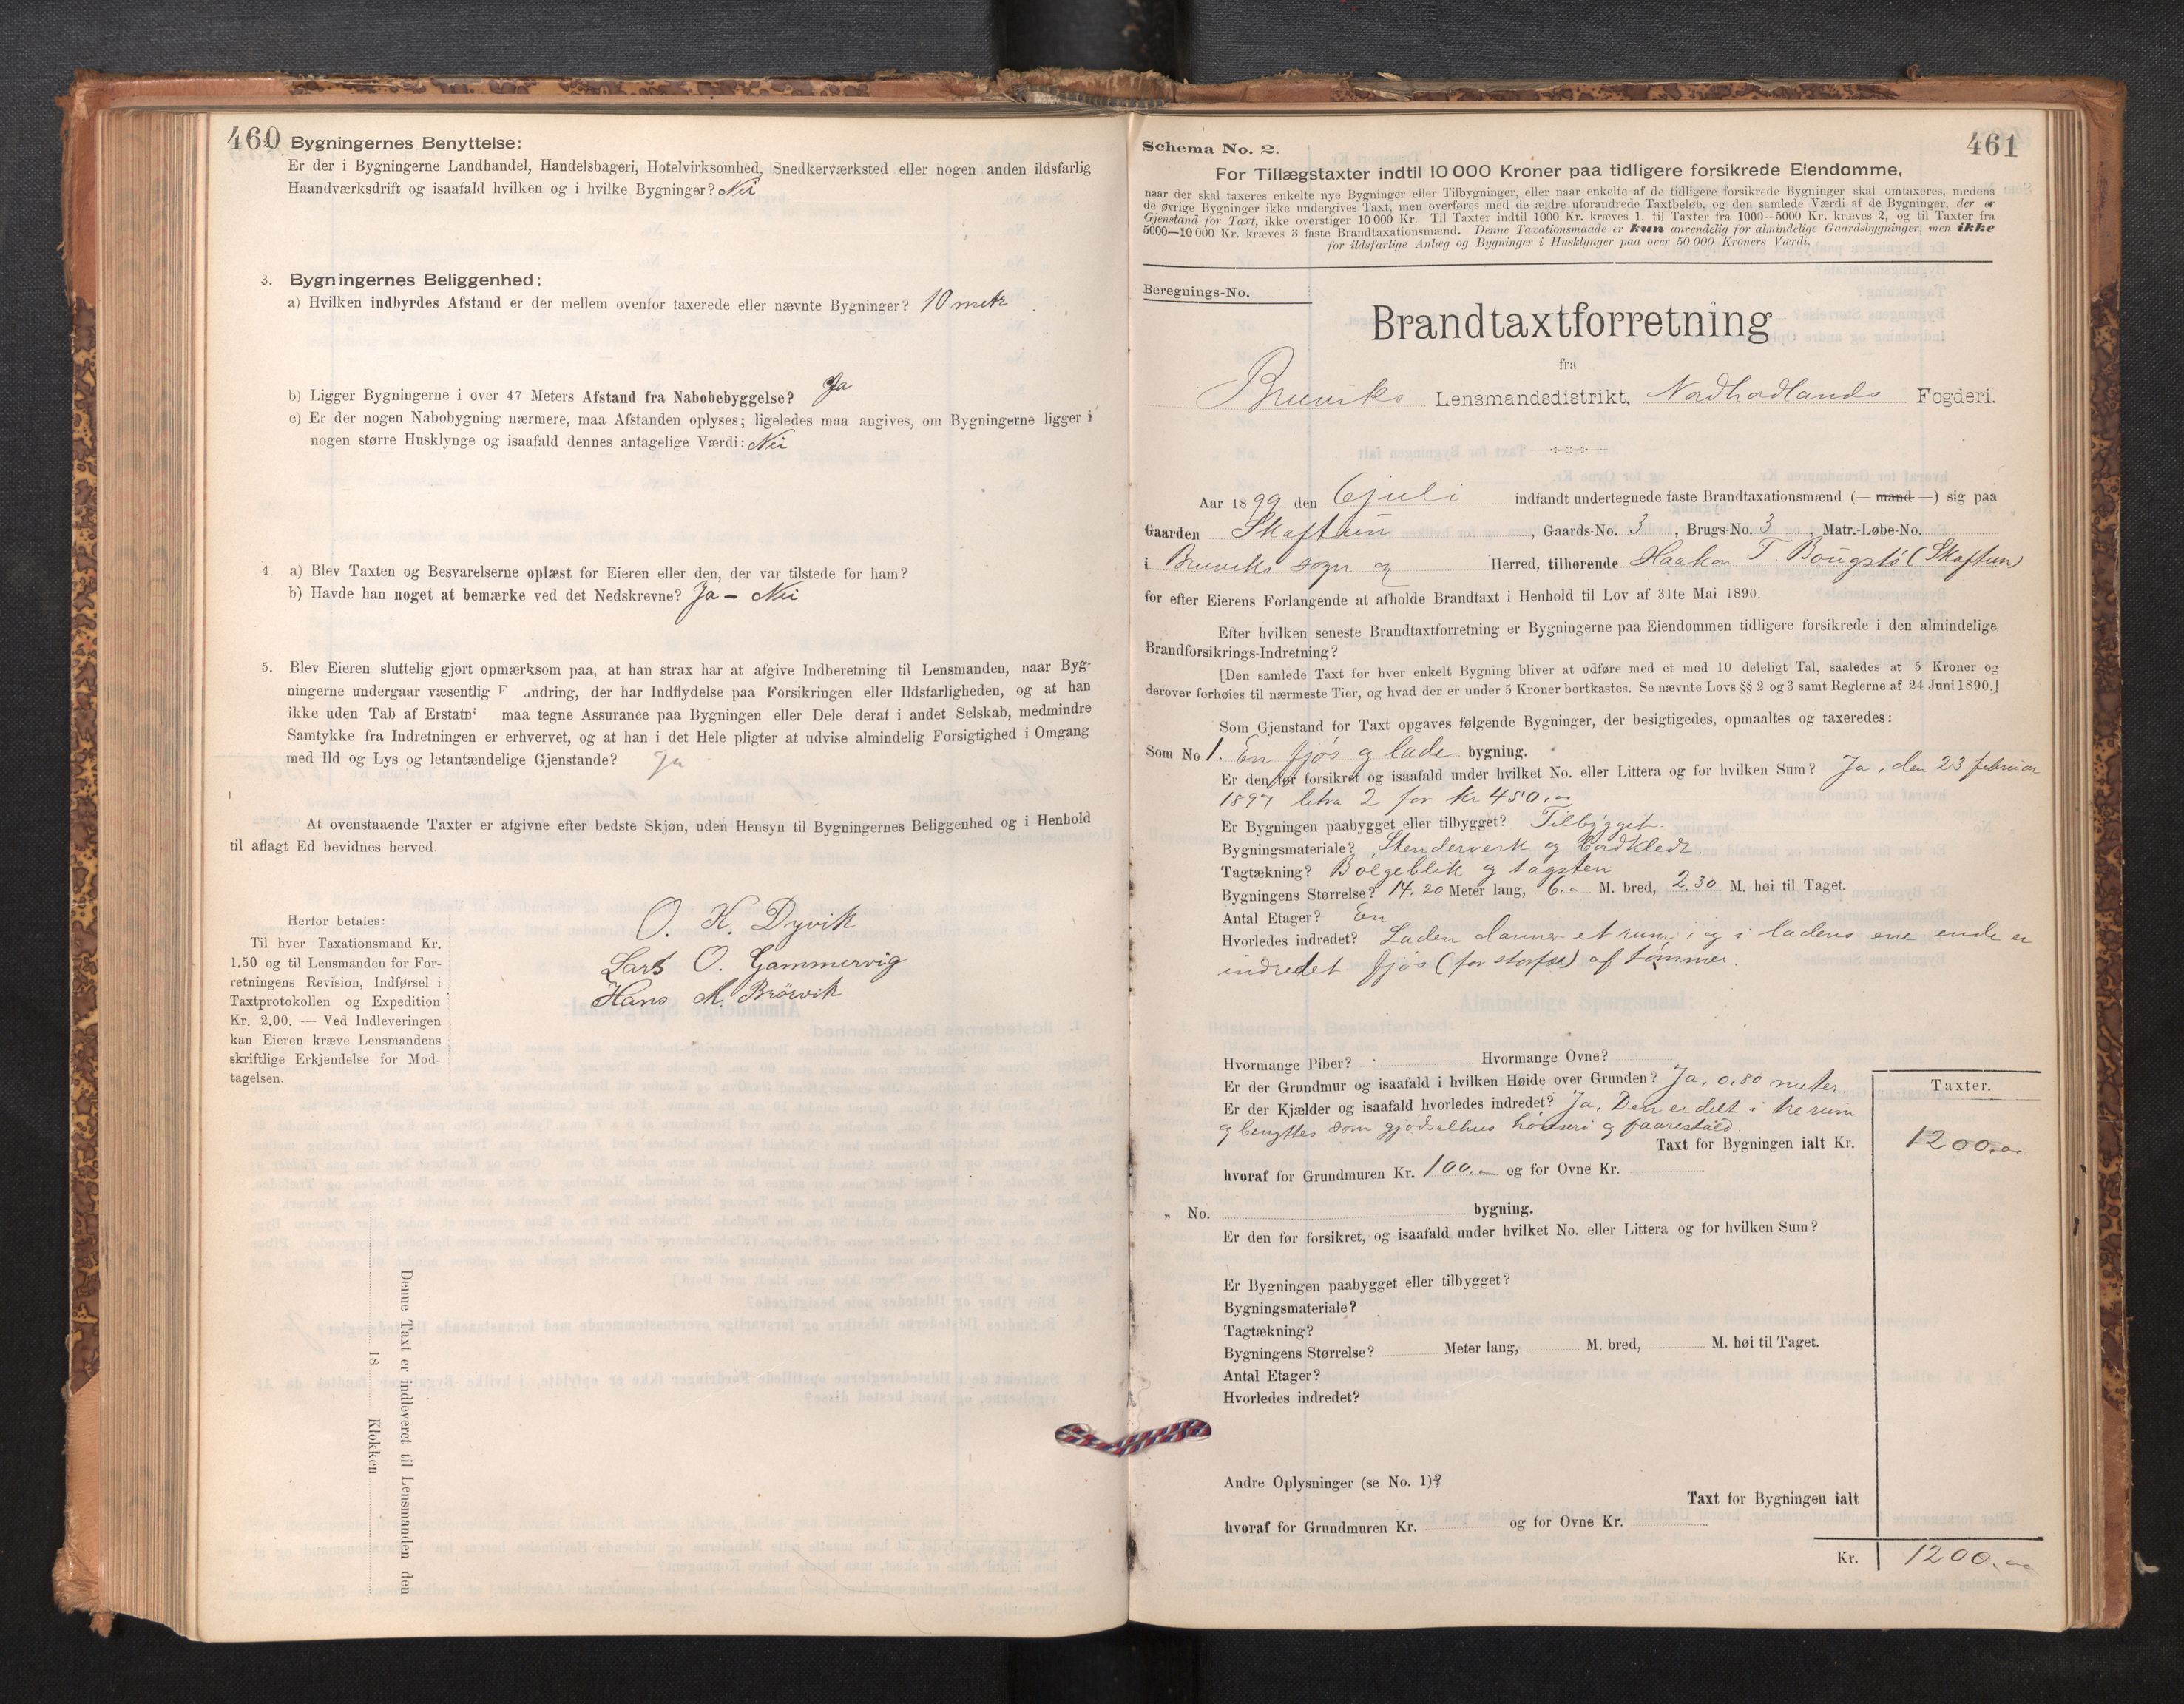 460
Bygningernes Benyttelse:
Er der i Bygningerne Landhandel, Handelsbageri, Hotelvirksomhed, Snedkerværksted eller nogen anden ildsfarlig
Haandværksdrift og isaafald hvilken og i hvilke Bygninger? Nei
3. Bygningernes Beliggenhed:
a) Hvilken indbyrdes Afstand er der mellem ovenfor taxerede eller nævnte Bygninger? 10 metr
b) Ligger Bygningerne i over 47 Meters Afstand fra Nabobebyggelse? Ja
c) Er der nogen Nabobygning nærmere, maa Afstanden oplyses; ligeledes maa angives, om Bygningerne ligger i
nogen større Husklynge og isaafald dennes antagelige Værdi: Nei
4. a) Blev Taxten og Besvarelserne oplæst for Eieren eller den, der var tilstede for ham?
b) Havde han noget at bemærke ved det Nedskrevne? Ja – Nei
5. Blev Eieren sluttelig gjort opmærksom paa, at han strax har at afgive Indberetning til Lensmanden, naar Byg-
ningerne undergaar væsentlig F andring, der har Indflydelse paa Forsikringen eller Ildsfarligheden, og at han
ikke uden Tab af Erstatni maa tegne Assurance paa Bygningen eller Dele deraf i andet Selskab, medmindre
Samtykke fra Indretningen er erhvervet, og at han i det Hele pligter at udvise almindelig Forsigtighed i Omgang
med Ild og Lys og letantændelige Gjenstande? Ja
At ovenstaaende Taxter er afgivne efter bedste Skjøn, uden Hensyn til Bygningernes Beliggenhed og i Henhold
til aflagt Ed bevidnes herved.
O. K. Dyvik
Lars O. Gammervig
Hans M. Brörvik
Herfor betales:
Til hver Taxationsmand Kr.
1.50 og til Lensmanden for For-
retningens Revision, Indførsel i
Taxtprotokollen og Expedition
Kr. 2.00. — Ved Indleveringen
kan Eieren kræve Lensmandens
skriftlige Erkjendelse for Mod-
tagelsen.
Denne Taxt er indleveret til Lensmanden den
18 Klokken
461
Schema No. 2.
For Tillægstaxter indtil 10 000 Kroner paa tidligere forsikrede Eiendomme,
naar der skal taxeres enkelte nye Bygninger eller Tilbygninger, eller naar enkelte af de tidligere forsikrede Bygninger skal omtaxeres, medens
de øvrige Bygninger ikke undergives Taxt, men overføres med de ældre uforandrede Taxtbeløb, og den samlede Værdi af de Bygninger, der er
Gjenstand for Taxt, ikke overstiger 10 000 Kr. Til Taxter indtil 1000 Kr. kræves 1, til Taxter fra 1000—5000 Kr. kræves 2, og til Taxter fra
5000—10 000 Kr. kræves 3 faste Brandtaxationsmænd. Denne Taxationsmaade er kun anvendelig for almindelige Gaardsbygninger, men ikke
for ildsfarlige Anlæg og Bygninger i Husklynger paa over 50 000 Kroners Værdi.
Beregnings-No.
Brandtaxtforretning
fra
Bruviks Lensmandsdistrikt, Nordhordlands Fogderi.
Aar 1899 den 6 juli indfandt undertegnede faste Brandtaxationsmænd (— mand —) sig paa
Gaarden Skaftun, Gaards-No. 3, Brugs-No. 3, Matr.-Løbe-No.
i Bruviks sogn og Herred, tilhørende Haakon T. Bougstö (Skaftun)
for efter Eierens Forlangende at afholde Brandtaxt i Henhold til Lov af 31te Mai 1890.
Efter hvilken seneste Brandtaxtforretning er Bygningerne paa Eiendommen tidligere forsikrede i den almindelige
Brandforsikrings-Indretning?
[Den samlede Taxt for hver enkelt Bygning bliver at udføre med et med 10 deleligt Tal, saaledes at 5 Kroner og
derover forhøies til nærmeste Tier, og hvad der er under 5 Kroner bortkastes. Se nævnte Lovs §§ 2 og 3 samt Reglerne af 24 Juni 1890.]
Som Gjenstand for Taxt opgaves følgende Bygninger, der besigtigedes, opmaaltes og taxeredes:
Som No 1. En fjös og lade bygning.
Er den før forsikret og isaafald under hvilket No. eller Littera og for hvilken Sum? Ja, den 23 februar
1897 letra 2 for kr 450.
Er Bygningen paabygget eller tilbygget? Tilbygget.
Bygningsmateriale? Stenderverk og bordklædt
Tagtækning? Bölgeblik og tagsten
Bygningens Størrelse? 14,20 Meter lang, 6. M. bred, 2,30 M. høi til Taget.
Antal Etager? En
Hvorledes indredet? Laden danner et rum, og i ladens ene ende er
indredet fjös (for storfæ) af tömmer.
Hvormange Piber? Hvormange Ovne?
Er der Grundmur og isaafald i hvilken Høide over Grunden? Ja, 0,80 meter.
Er der Kjælder og isaafald hvorledes indredet? Ja, Den er delt i tre rum
og benyttes som gjödselhus hönseri og faarestald.
Taxter.
Taxt for Bygningen ialt Kr. 1200.00
hvoraf for Grundmuren Kr. 100. og for Ovne Kr.
„ No. bygning.
Er den før forsikret, og isaafald under hvilket No. eller Littera og for hvilken Sum?
Er Bygningen paabygget eller tilbygget?
Bygningsmateriale?
Tagtækning?
Bygningens Størrelse? Meter lang, M. bred, M. høi til Taget.
Antal Etager?
Hvorledes indredet?
Andre Oplysninger (se No. 1)?
Taxt for Bygningen ialt
hvoraf for Grundmuren Kr. og for Ovne Kr.
Kr. 1200.00